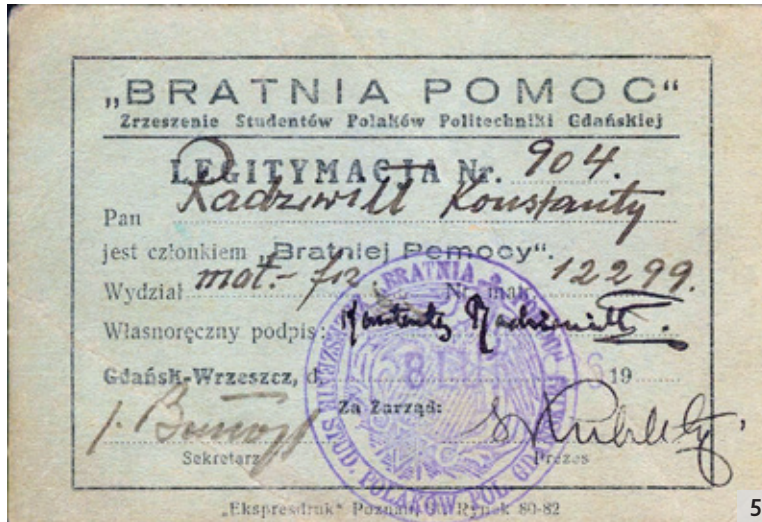 „BRATNIA POMOC“
Zrzeszenie Studentów Polaków Politechniki Gdańskiej
LEGITYMACJA Nr. 904.
Pan Radziwiłł Konstanty
jest członkiem „Bratniej Pomocy“.
Wydział mat.-fiz Nr. mat. 12299.
Własnoręczny podpis: Konstanty Radziwiłł
Gdańsk-Wrzeszcz, d. 8 19
Za Zarząd:
Sekretarz Prezes
„Ekspresdruk“ Poznań, St. Rynek 80-82
BRATNIA STUD. POLAKÓW POL.
5